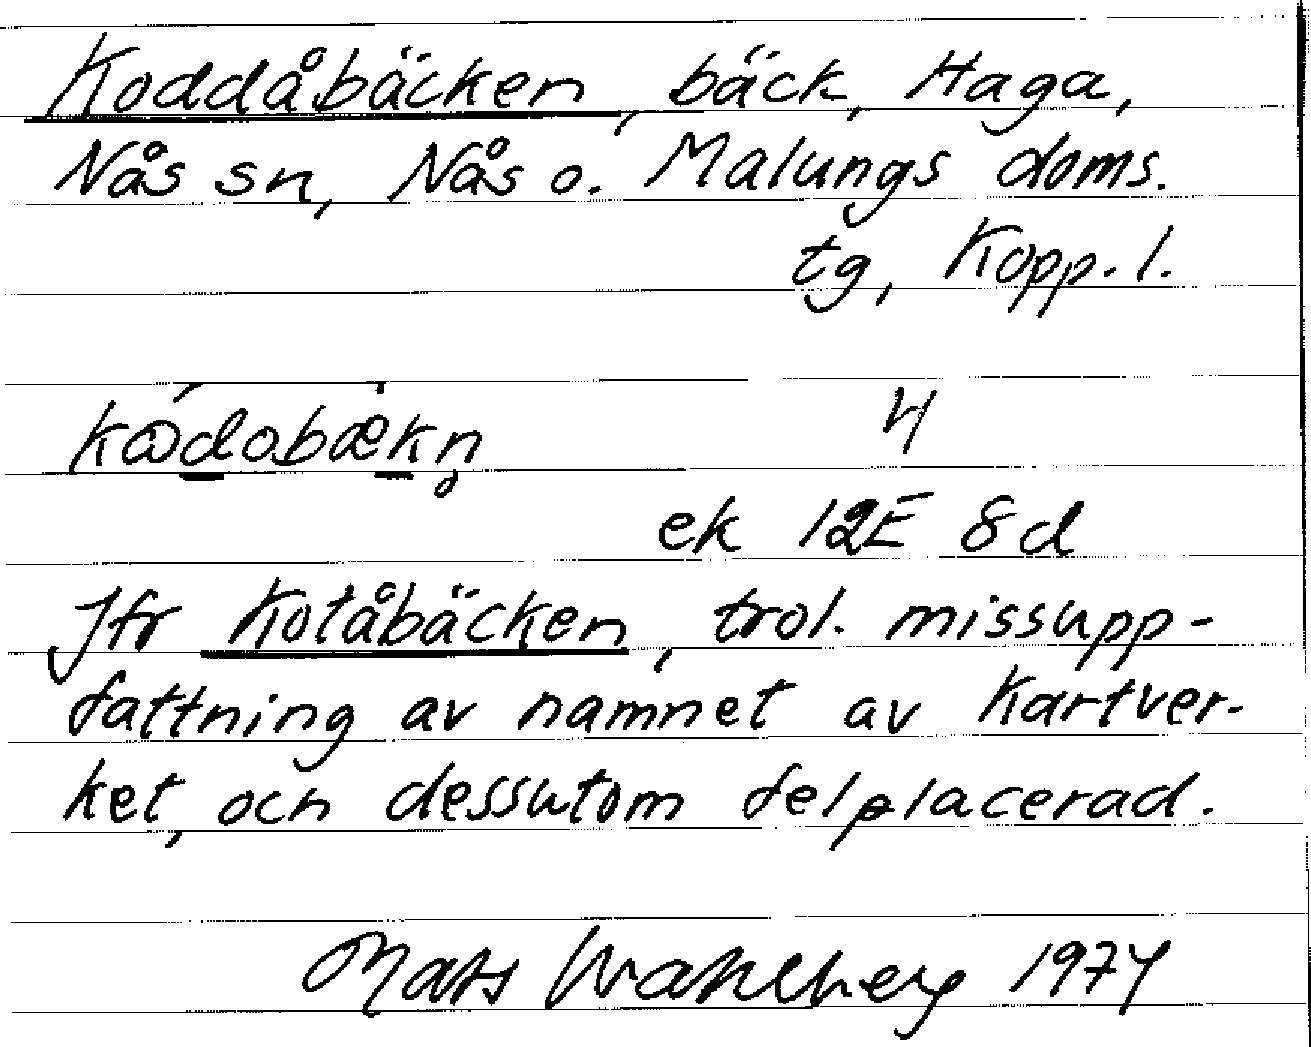 Koddåbäcken, bäck, Haga,
Nås sn, Nås o. Malungs doms.
tg, Kopp. l.
ek 12E 8d
Jfr Kotåbäcken, trol. missupp-
fattning av namnet av Kartver-
ket, och dessutom felplacerad.
Mats Wahlberg 1974